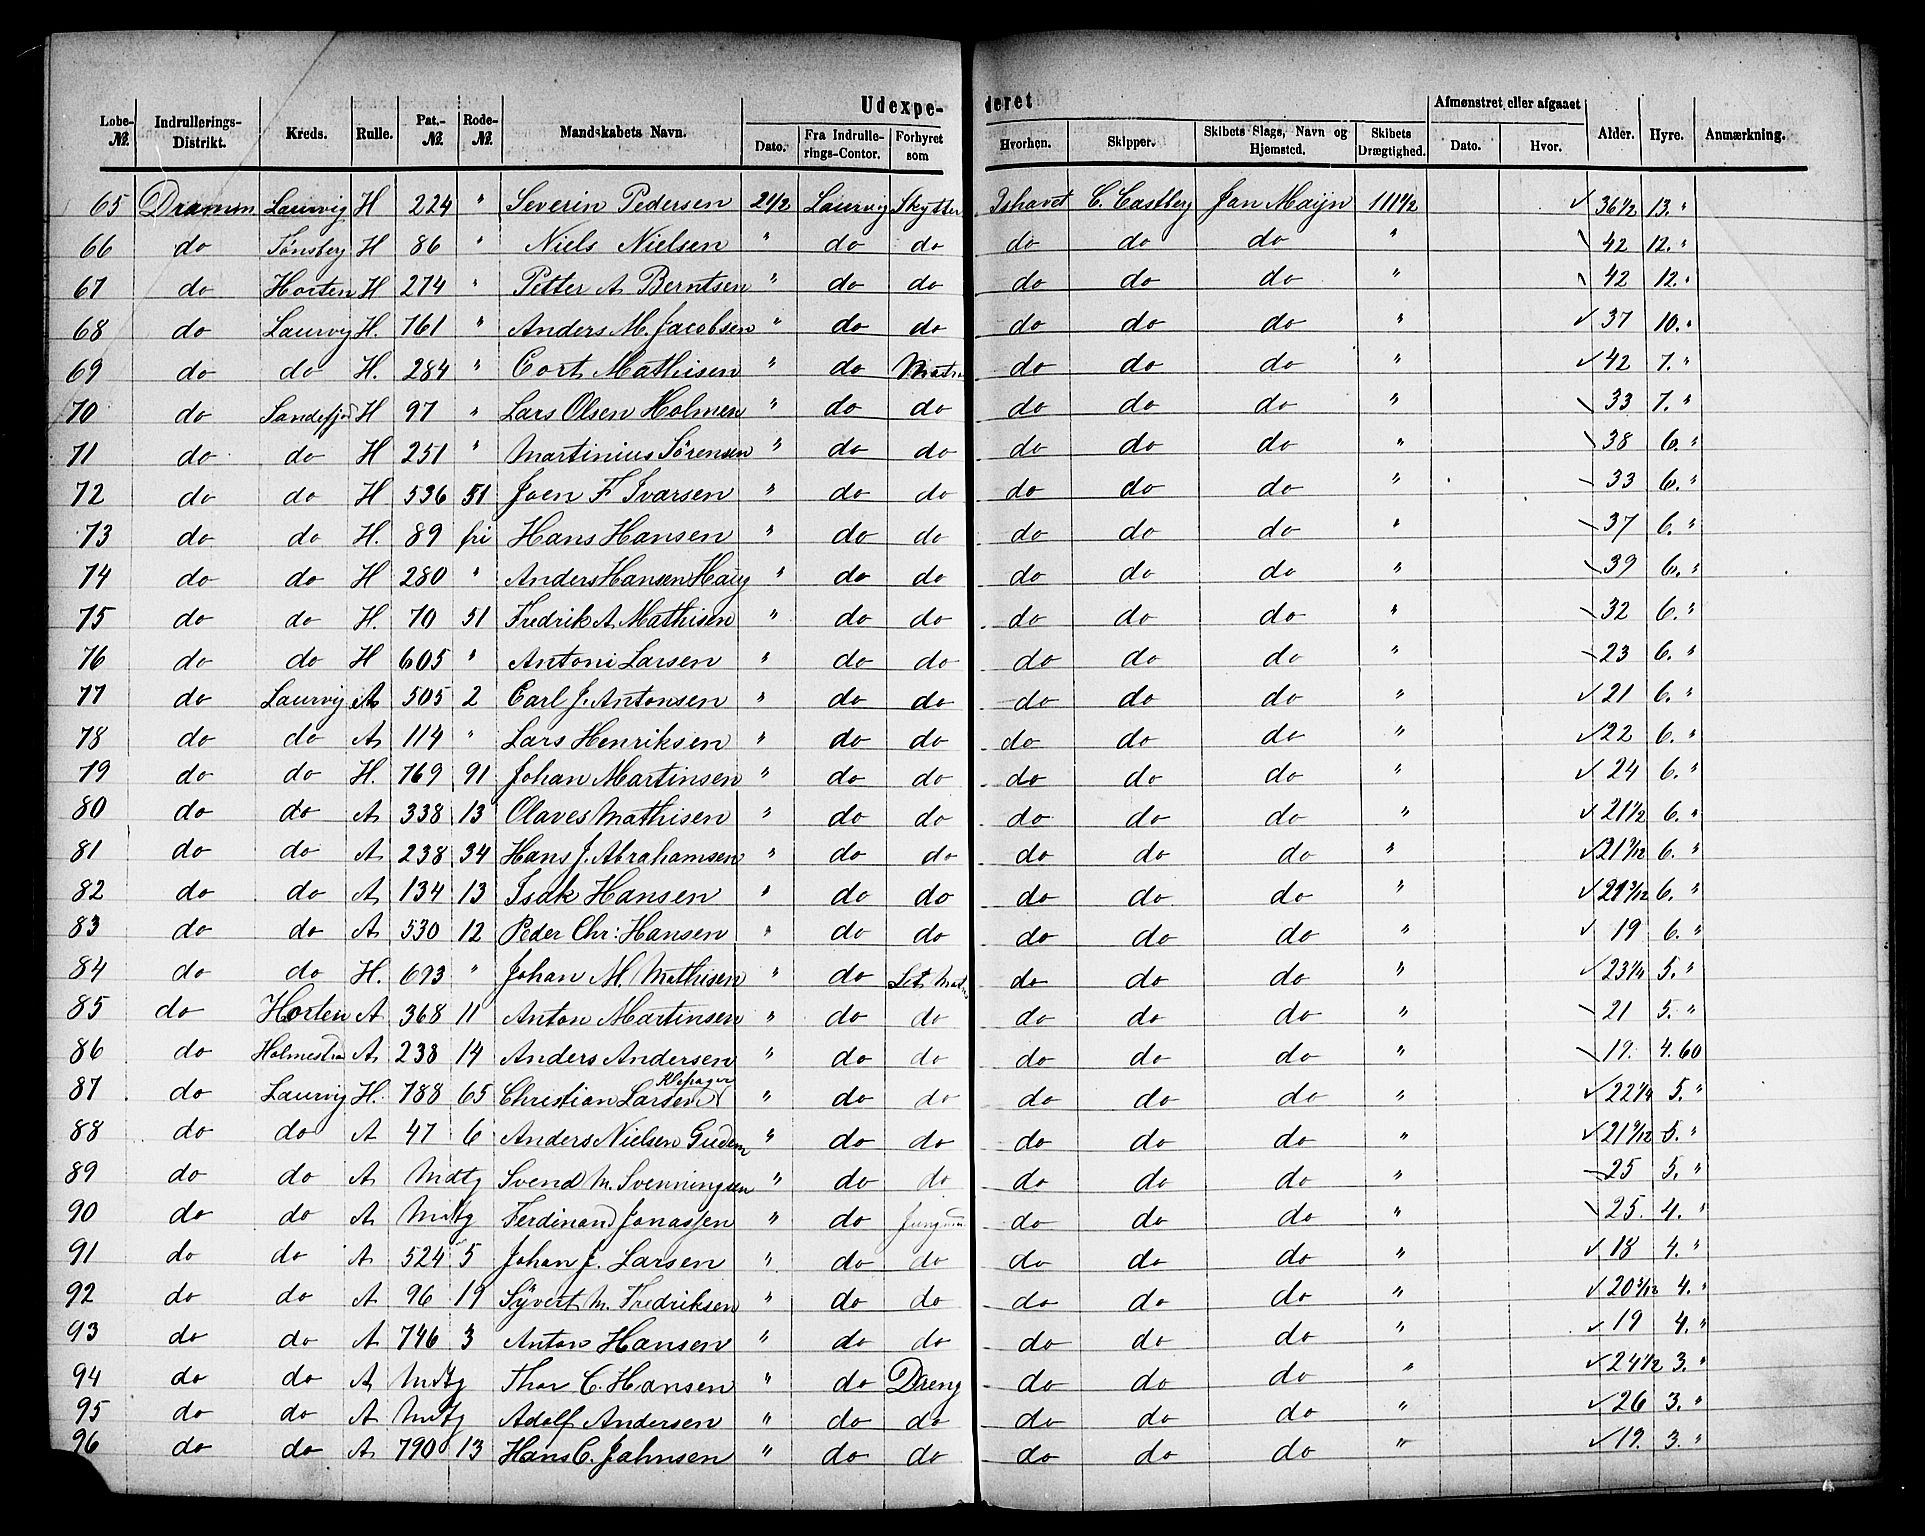 Udexpederet
Løbe-№. Indrullerings-Distrikt. Kreds. Rulle. Pat.-№. Rode-№. Mandskabets Navn. Dato. Fra Indrullerings-Contor. Forhyret som Hvorhen. Skipper. Skibets Slags, Navn og Hjemsted. Skibets Drægtighed. Afmønstret eller afgaaet Dato. Hvor. Alder. Hyre. Anmærkning.
65 Drammen Laurvig H 224 " Severin Pedersen 21/2 Laurvig Skytter Ishavet C. Castberg Jan Maijn 111 1/2 ✓ 36 1/2 13. "
66 do Tønsberg H 86 " Niels Nielsen " do do do do do " \ 42 12. "
67 do Horten H 274 " Petter A Berntsen " do do do do do " \ 42 12. "
68 do Laurvig H. 761 " Anders M. Jacobsen " do do do do do " ✓ 37 10. "
69 do do H. 284 " Cort Mathisen " do Matr do do do " ✓ 42 7. "
70 do Sandefjod H 97 " Lars Olsen Holmen " do do do do do " \ 33 7. "
71 do do H 251 " Martinius Sørensen " do do do do do " \ 38 6. "
72 do do H 536 51 Joen F Ivarsen " do do do do do " \ 33 6. "
73 do do H. 89 fri Hans Hansen " do do do do do " \ 37 6. "
74 do do H 280 " Anders Hansen Haug " do do do do do " \ 39 6. "
75 do do H. 70 51 Fredrik A Mathisen " do do do do do " \ 32 6. "
76 do do H 605 " Antoni Larsen " do do do do do " \ 23 6. "
77 do Laurvig A 505 2 Carl J. Antonsen " do do do do do " ✓ 21 6. "
78 do do A 114 " Lars Henriksen " do do do do do " ✓ 22 6. "
79 do do H. 769 91 Johan Martinsen " do do do do do " ✓ 24 6. "
80 do do A 338 13 Olaves Mathisen " do do do do do " ✓ 21 1/2 6. "
81 do do A 238 34 Hans J. Abrahamsen " do do do do do " ✓ 21 /12 6. "
82 do do A 134 13 Isak Hansen " do do do do do " ✓ 21 3/12 6. "
83 do do A 530 12 Peder Chr: Hansen " do do do do do " ✓ 19 6. "
84 do do H. 693 " Johan M. Mathisen " do Let Matros do do do " ✓ 23 1/4 5. "
85 do Horten A 368 11 Anton Martinsen " do do do do do " \ 21 5. "
86 do Holmestra A 238 14 Anders Andersen " do do do do do " \ 19. 4.60
87 do Laurvig H. 788 65 Christian Larsen " do do do do do " ✓ 22 1/4 5. "
88 do do A 47 6 Anders Nielsen Gudem " do do do do do " ✓ 21 9/12 5. "
89 do do A Mdtg Svend M. Svenningsen " do do do do do " \ 25 5. "
90 do do A Mdtg Ferdinand Jonassen " do Jungm do do do " \ 25. 4. "
91 do do A 524 5 Johan J. Larsen " do do do do do " ✓ 18 4. "
92 do do A 96 19 Syvert M. Fredriksen " do do do do do " ✓ 20 3/12 4. "
93 do do A 746 3 Anton Hansen " do do do do do " ✓ 19 4. "
94 do do A Mdtg Thor C. Hansen " do Dreng do do do " ✓ 24 1/2 3. "
95 do do A Mdtg Adolf Andersen " do do do do do " ✓ 26 3. "
96 do do A 790 13 Hans C. Jahnsen " do do do do do " ✓ 19. 3. "